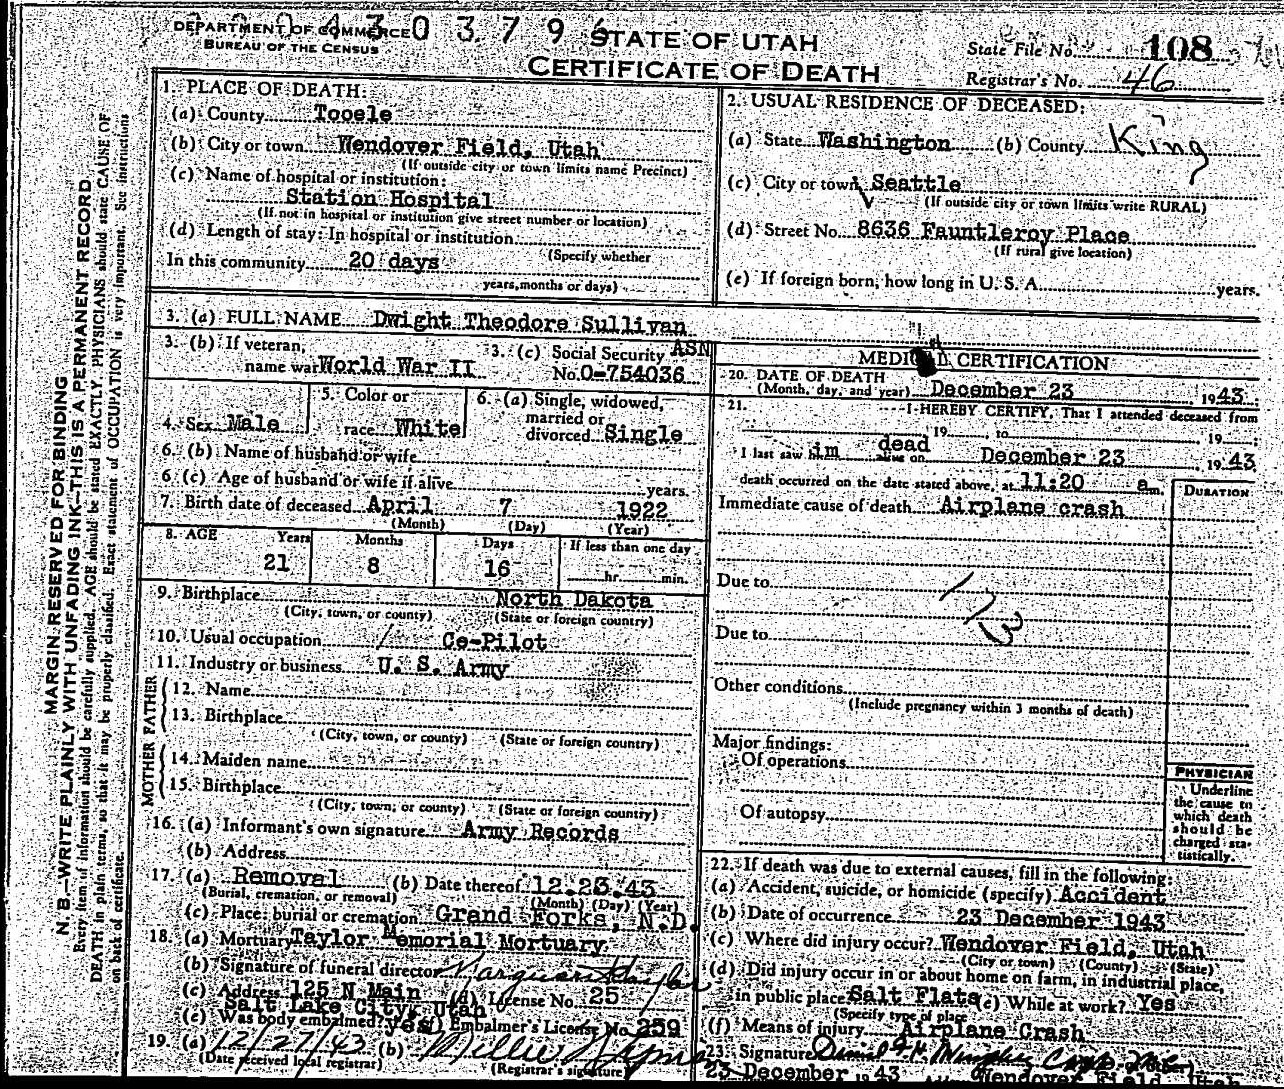 DEPARTMENT OF COMMERCE
BUREAU OF THE CENSUS
STATE OF UTAH
CERTIFICATE OF DEATH
State File No. 108
Registrar's No. 46
MARGIN RESERVED FOR BINDING
N. B.—WRITE PLAINLY WITH UNFADING INK—THIS IS A PERMANENT RECORD
Every item of information should be carefully supplied. AGE should be stated EXACTLY. PHYSICIANS should state CAUSE OF
DEATH in plain terms, so that it may be properly classified. Exact statement of OCCUPATION is very important. See instructions
on back of certificate.
1. PLACE OF DEATH:
(a) County Tooele
(b) City or town Wendover Field, Utah
(If outside city or town limits name Precinct)
(c) Name of hospital or institution:
Station Hospital
(If not in hospital or institution give street number or location)
(d) Length of stay: In hospital or institution
(Specify whether
In this community 20 days
years, months or days)
2. USUAL RESIDENCE OF DECEASED:
(a) State Washington (b) County King
(c) City or town Seattle
(If outside city or town limits write RURAL)
(d) Street No. 8636 Fauntleroy Place
(If rural give location)
(e) If foreign born, how long in U. S. A. years.
3. (a) FULL NAME Dwight Theodore Sullivan
3. (b) If veteran,
name war World War II
3. (c) Social Security ASN
No. O-754036
4. Sex Male
5. Color or
race White
6. (a) Single, widowed,
married or
divorced Single
6. (b) Name of husband or wife
6. (c) Age of husband or wife if alive years.
7. Birth date of deceased April 7 1922
(Month) (Day) (Year)
8. AGE Years Months Days If less than one day
21 8 16 hr. min.
9. Birthplace North Dakota
(City, town, or county) (State or foreign country)
10. Usual occupation Co-Pilot
11. Industry or business U. S. Army
FATHER
12. Name
13. Birthplace
(City, town, or county) (State or foreign country)
MOTHER
14. Maiden name
15. Birthplace
(City, town, or county) (State or foreign country)
16. (a) Informant's own signature Army Records
(b) Address
17. (a) Removal (b) Date thereof 12.23.43
(Burial, cremation, or removal) (Month) (Day) (Year)
(c) Place: burial or cremation Grand Forks, N.D.
18. (a) Mortuary Taylor Memorial Mortuary
(b) Signature of funeral director
(c) Address 125 N Main (d) License No. 25
Salt Lake City, Utah
(e) Was body embalmed? yes (f) Embalmer's License No. 259
19. (a) 12/27/43 (b) Millie
(Date received local registrar) (Registrar's signature)
MEDICAL CERTIFICATION
20. DATE OF DEATH
(Month, day, and year) December 23 1943
21. I HEREBY CERTIFY, That I attended deceased from
19 to 19 ;
I last saw him dead alive on December 23, 1943
death occurred on the date stated above, at 11:20 a.m.
DURATION
Immediate cause of death Airplane crash
Due to
Due to
Other conditions
(Include pregnancy within 3 months of death)
Major findings:
Of operations
Of autopsy
PHYSICIAN
Underline
the cause to
which death
should be
charged sta-
tistically.
22. If death was due to external causes, fill in the following:
(a) Accident, suicide, or homicide (specify) Accident
(b) Date of occurrence 23 December 1943
(c) Where did injury occur? Wendover Field, Utah
(City or town) (County) (State)
(d) Did injury occur in or about home on farm, in industrial place,
in public place? Salt Flats (e) While at work? Yes
(Specify type of place
(f) Means of injury Airplane Crash
23. Signature
23 December 1943 Wendover Field